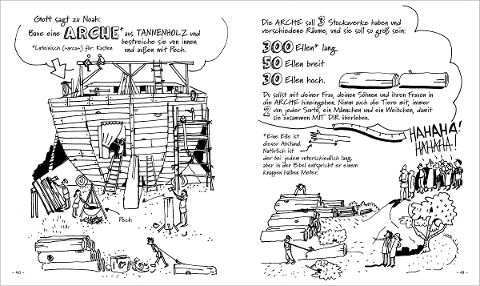 Gott sagt zu Noah:
Baue eine ARCHE* aus TANNENHOLZ und
bestreiche sie von innen
und außen mit Pech.
*Lateinisch (»arca«) für: Kasten
Pech
- 40 -
Die ARCHE soll 3 Stockwerke haben und
verschiedene Räume, und sie soll so groß sein:
300 Ellen* lang,
50 Ellen breit
30 Ellen hoch.
Du sollst mit deiner Frau, deinen Söhnen und ihren Frauen in
die ARCHE hineingehen. Nimm auch die Tiere mit, immer
2 von jeder Sorte, ein Männchen und ein Weibchen, damit
sie zusammen MIT DIR überleben.
*Eine Elle ist
dieser Abstand.
Natürlich ist
der bei jedem unterschiedlich lang,
aber in der Bibel entspricht er einem
knappen halben Meter.
HAHAHA!
HAHAHA!
- 41 -